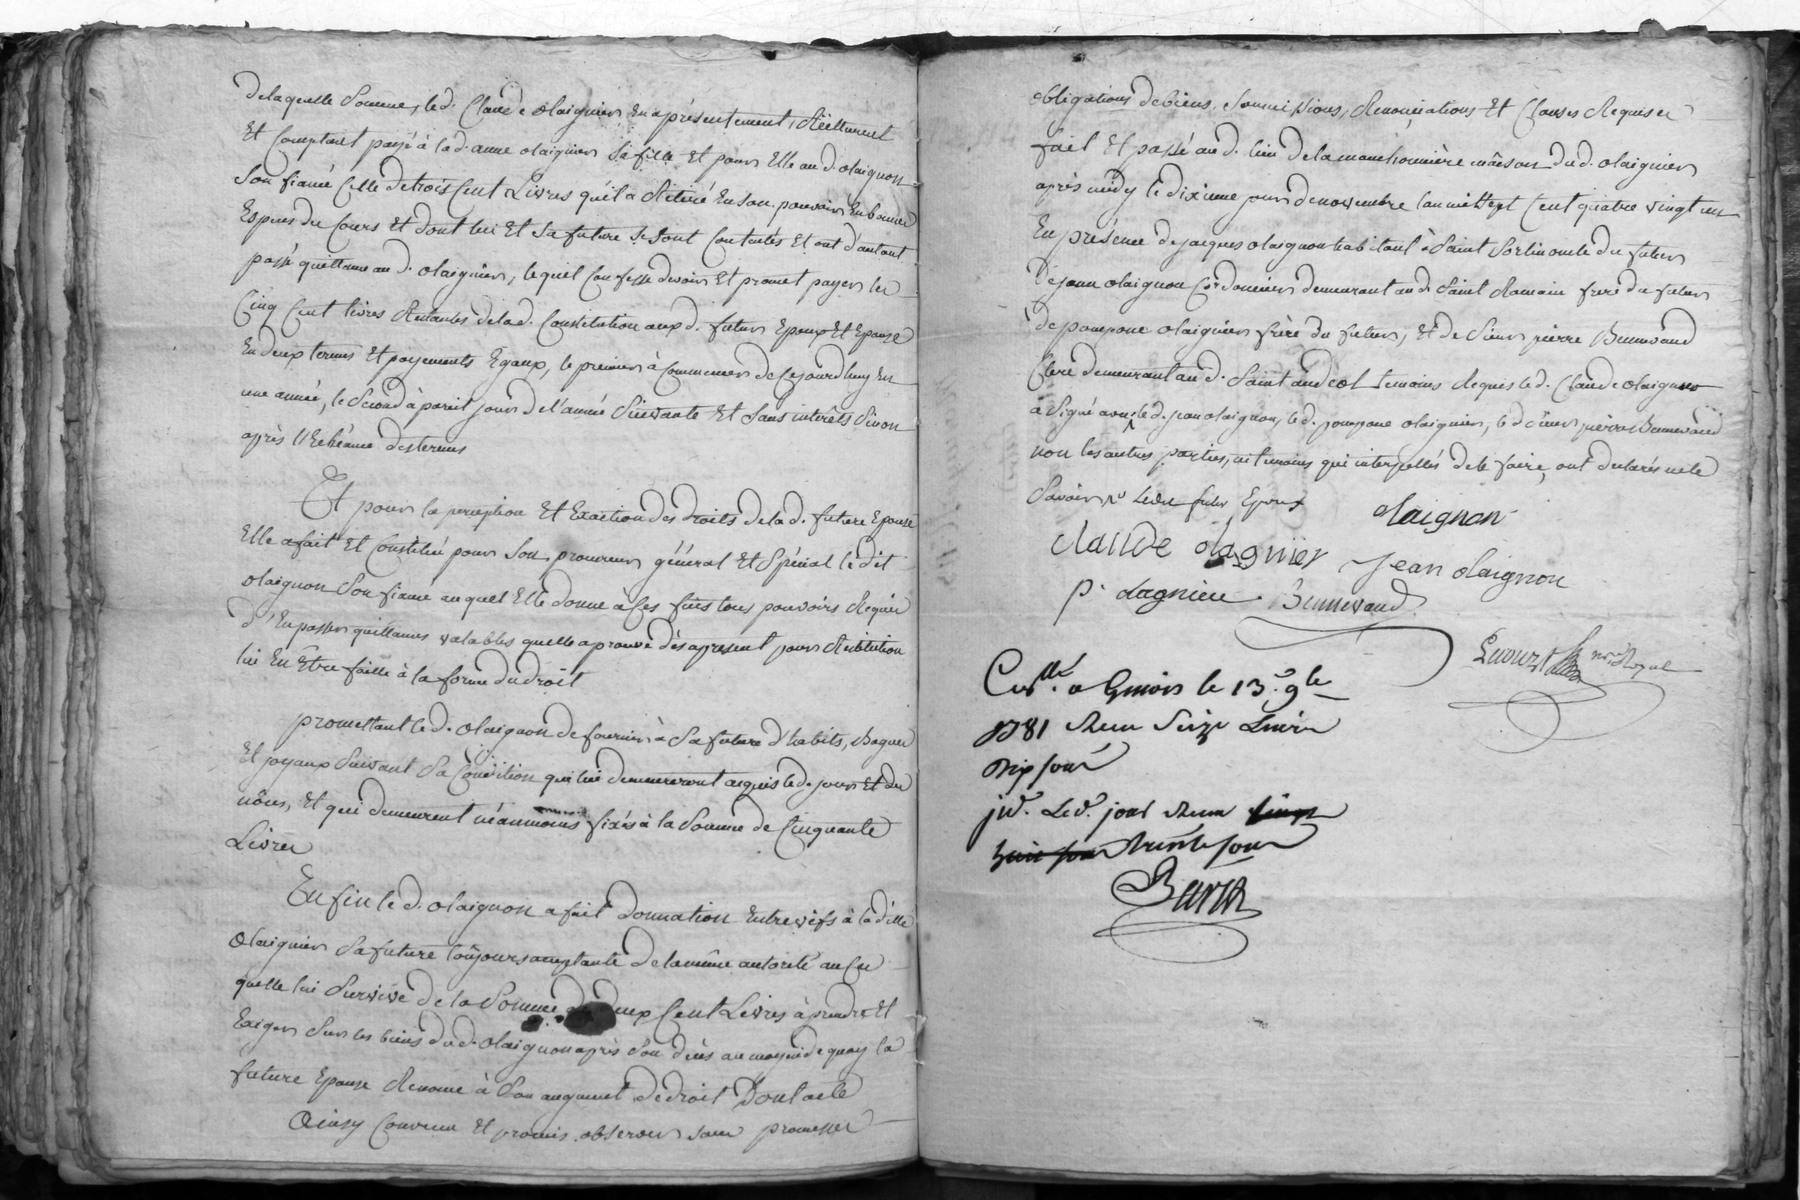 delaquelle Somme, led. Claude olaignier En a présentement, Réellement
Et Comptant payé à lad. anne olaignier Sa fille Et pour Elle aud. olaignon
Son fiancé Celle de trois Cent Livres qu'il a Retiré En Son pouvoir En bonnes
Especes du Cours Et dont lui Et Sa future Se Sont Contentés Et ont d'autant
passé quittance aud. olaignier, lequel Confesse devoir Et promet payer les
Cinq Cent livres Restantes de lad. Constitution auxd. futurs Epoux Et Epouse
En deux termes Et payements Egaux, le premier à Commencer de Cejourdhuy En
une année, le Second à pareil jour de l'année Suivante Et Sans intérêts Sinon
après l'Echéance des termes
Et pour la perception Et Exaction des droits de lad. future Epouse
Elle a fait Et Constitué pour Son procureur général Et Spécial le dit
olaignon Son fiancé auquel Elle donne à Ces fins tous pouvoirs Requis
d'En passer quittances valables quelle aprouve dès apresent pour Restitution
lui En Etre faitte à la forme du droit
promettant led. olaignon de fournir à Sa future d'habits, Bagues
Et joyaux Suivant Sa Condition qui lui demeureront acquis led. jour Et des
nôces, Et qui demeurent néanmoins fixés à la Somme de Cinquante
Livres
Enfin led. olaignon a fait Donnation Entre vifs à la ditte
Olaignier Sa future toûjours acceptante de la même autorité au Cas
quelle lui Survive de la Somme de deux Cent Livres à prendre Et
Exiger Sur les biens dud. olaignon après Son décès au moyen de quoy la
future Epouse Renonce à Son augment de droit Dont acte
Ainsy Convenu Et promis observer sous promesses
obligations de biens, Soumissions, Renonciations Et Clauses Requises
fait Et passé aud. lieu de la manchonnière maison dud. olaignier
après midy le dixieme jour de novembre l'an mil sept Cent quatre vingt un
En présence de jacques olaignon habitant à Saint Sorlin oncle du futur
De jean olaignon Cordonnier demeurant aud. Saint Romain frere du futur
de pompone olaignier frère du futur, Et de Sieur pierre Bennevaud
Clerc demeurant aud. Saint andéol temoins Requis led. Claude olaignier
a Signé avec led. jean olaignon, led. pompone olaignier, led. Sieur pierre Bennevaud
non les autres parties, ni temoins qui interpellés de le faire, ont declarés ne le
Savoir, Ledit futur Epoux
olaignon
claude olagnier jean olaignon
p. olagnier Bennevaud
nre Royal
Collé. a Givors le 13e. 9bre
1781 Reçu Seize Livres
dix sous
jd. Led. jour Reçu vingt
huit sous trente sous